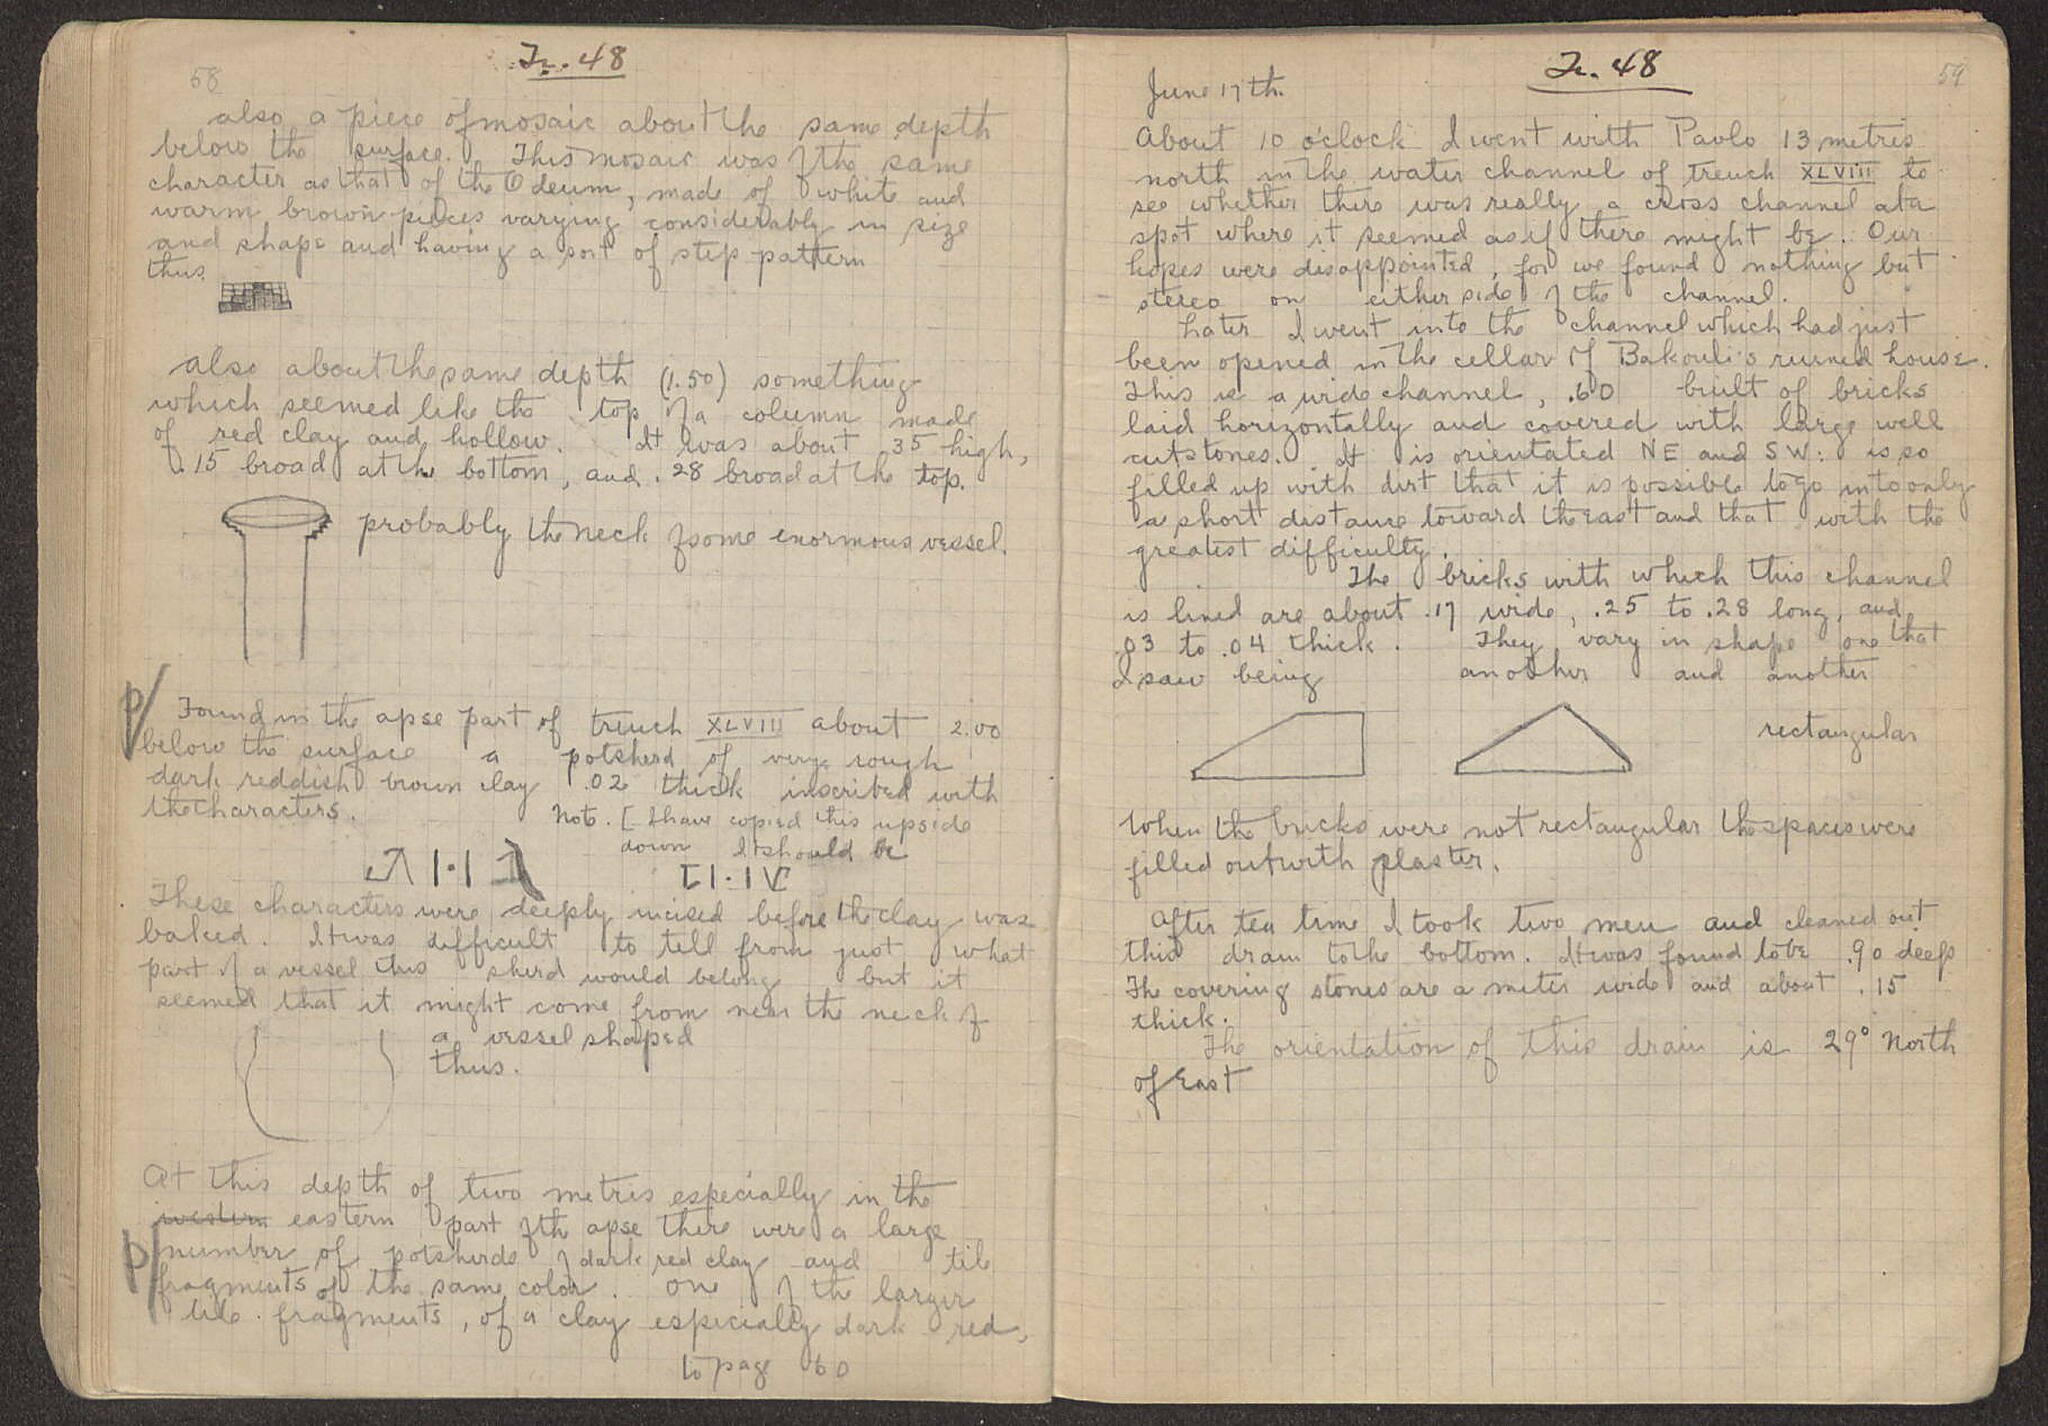 58
Tr. 48
also a piece of mosaic about the same depth
below the surface. This mosaic was of the same
character as that of the Odeum, made of white and
warm brown pieces varying considerably in size
and shape and having a sort of step pattern
thus
also about the same depth (1.50) something
which seemed like the top of a column made
of red clay and hollow. It was about .35 high,
.15 broad at the bottom, and .28 broad at the top.
probably the neck of some enormous vessel.
P/
Found in the apse part of trench XLVIII about 2.00
below the surface a potsherd of very rough
dark reddish brown clay .02 thick inscribed with
the characters.
Note. [I have copied this upside
down It should be
These characters were deeply incised before the clay was
baked. It was difficult to tell from just what
part of a vessel this sherd would belong but it
seemed that it might come from near the neck of
a vessel shaped
thus.
At this depth of two metres especially in the
western eastern part of th apse there were a large
P/
number of potsherds of dark red clay and tile
fragments of the same color. One of the larger
tile fragments, of a clay especially dark red,
to page 60
Tr. 48
59
June 17th.
About 10 o'clock I went with Pavlo 13 metres
north in the water channel of trench XLVIII to
see whether there was really a cross channel at a
spot where it seemed as if there might be. Our
hopes were disappointed, for we found nothing but
stereo on either side of the channel.
Later I went into the channel which had just
been opened in the cellar of Bakouli's ruined house.
This is a wide channel, .60 built of bricks
laid horizontally and covered with large well
cut stones. It is orientated NE and SW: is so
filled up with dirt that it is possible to go into only
a short distance toward the East and that with the
greatest difficulty.
The bricks with which this channel
is lined are about .17 wide, .25 to .28 long, and
.03 to .04 thick. They vary in shape one that
I saw being another and another
rectangular
When the bricks were not rectangular the spaces were
filled out with plaster.
After tea time I took two men and cleaned out
this drain to the bottom. It was found to be .90 deep
The covering stones are a meter wide and about .15
thick.
The orientation of this drain is 29° North
of East